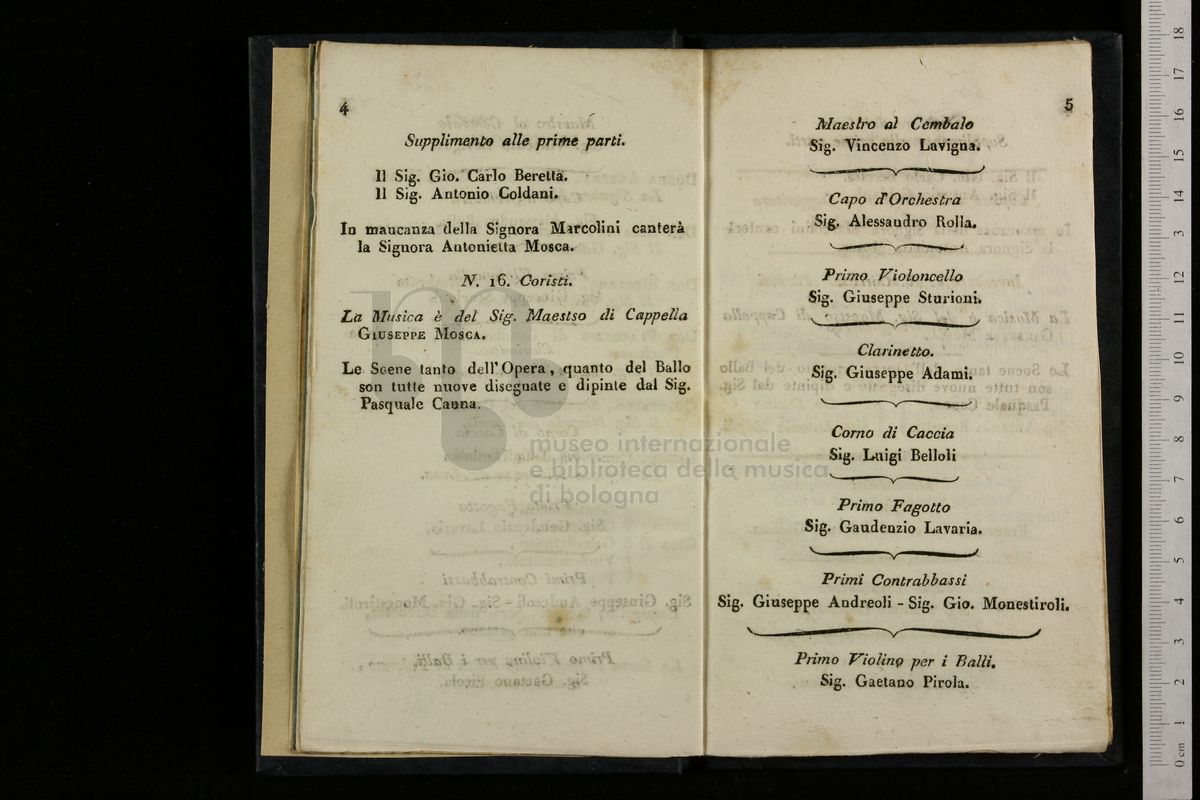 4
Supplimento alle prime parti.
Il Sig. Gio. Carlo Beretta.
Il Sig. Antonio Coldani.
In mancanza della Signora Marcolini canterà
la Signora Antonietta Mosca.
N. 16. Coristi.
La Musica è del Sig. Maestso di Cappella
GIUSEPPE MOSCA.
Le Scene tanto dell'Opera, quanto del Ballo
son tutte nuove disegnate e dipinte dal Sig.
Pasquale Canna.
5
Maestro al Cembalo
Sig. Vincenzo Lavigna.
Capo d'Orchestra
Sig. Alessandro Rolla.
Primo Violoncello
Sig. Giuseppe Sturioni.
Clarinetto.
Sig. Giuseppe Adami.
Corno di Caccia
Sig. Luigi Belloli
Primo Fagotto
Sig. Gaudenzio Lavaria.
Primi Contrabbassi
Sig. Giuseppe Andreoli - Sig. Gio. Monestiroli.
Primo Violino per i Balli.
Sig. Gaetano Pirola.
museo internazionale
e biblioteca della musica
di bologna
0 cm 1 2 3 4 5 6 7 8 9 10 11 12 13 14 15 16 17 18